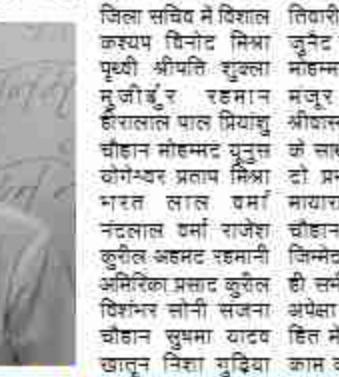 जिला सचिव में विशाल
कश्यप विनोद मिश्रा
पृथ्वी श्रीपति शुक्ला
मुजीबुर रहमान
हीरालाल पाल प्रियांशु
चौहान मोहम्मद यूनुस
योगेश्वर प्रताप मिश्रा
भरत लाल वर्मा
नंदलाल वर्मा राजेश
कुरील अहमद रहमानी
अमिरिका प्रसाद कुरील
विशंभर सोनी संजना
चौहान सुषमा यादव
खातून निशा गुड़िया
तिवारी
जुनैद
मोहम्म
मंजूर
श्रीवास्त
के साथ
दो प्र
मायारा
चौहान
जिम्मेद
ही सम
अपेक्षा
हित में
काम